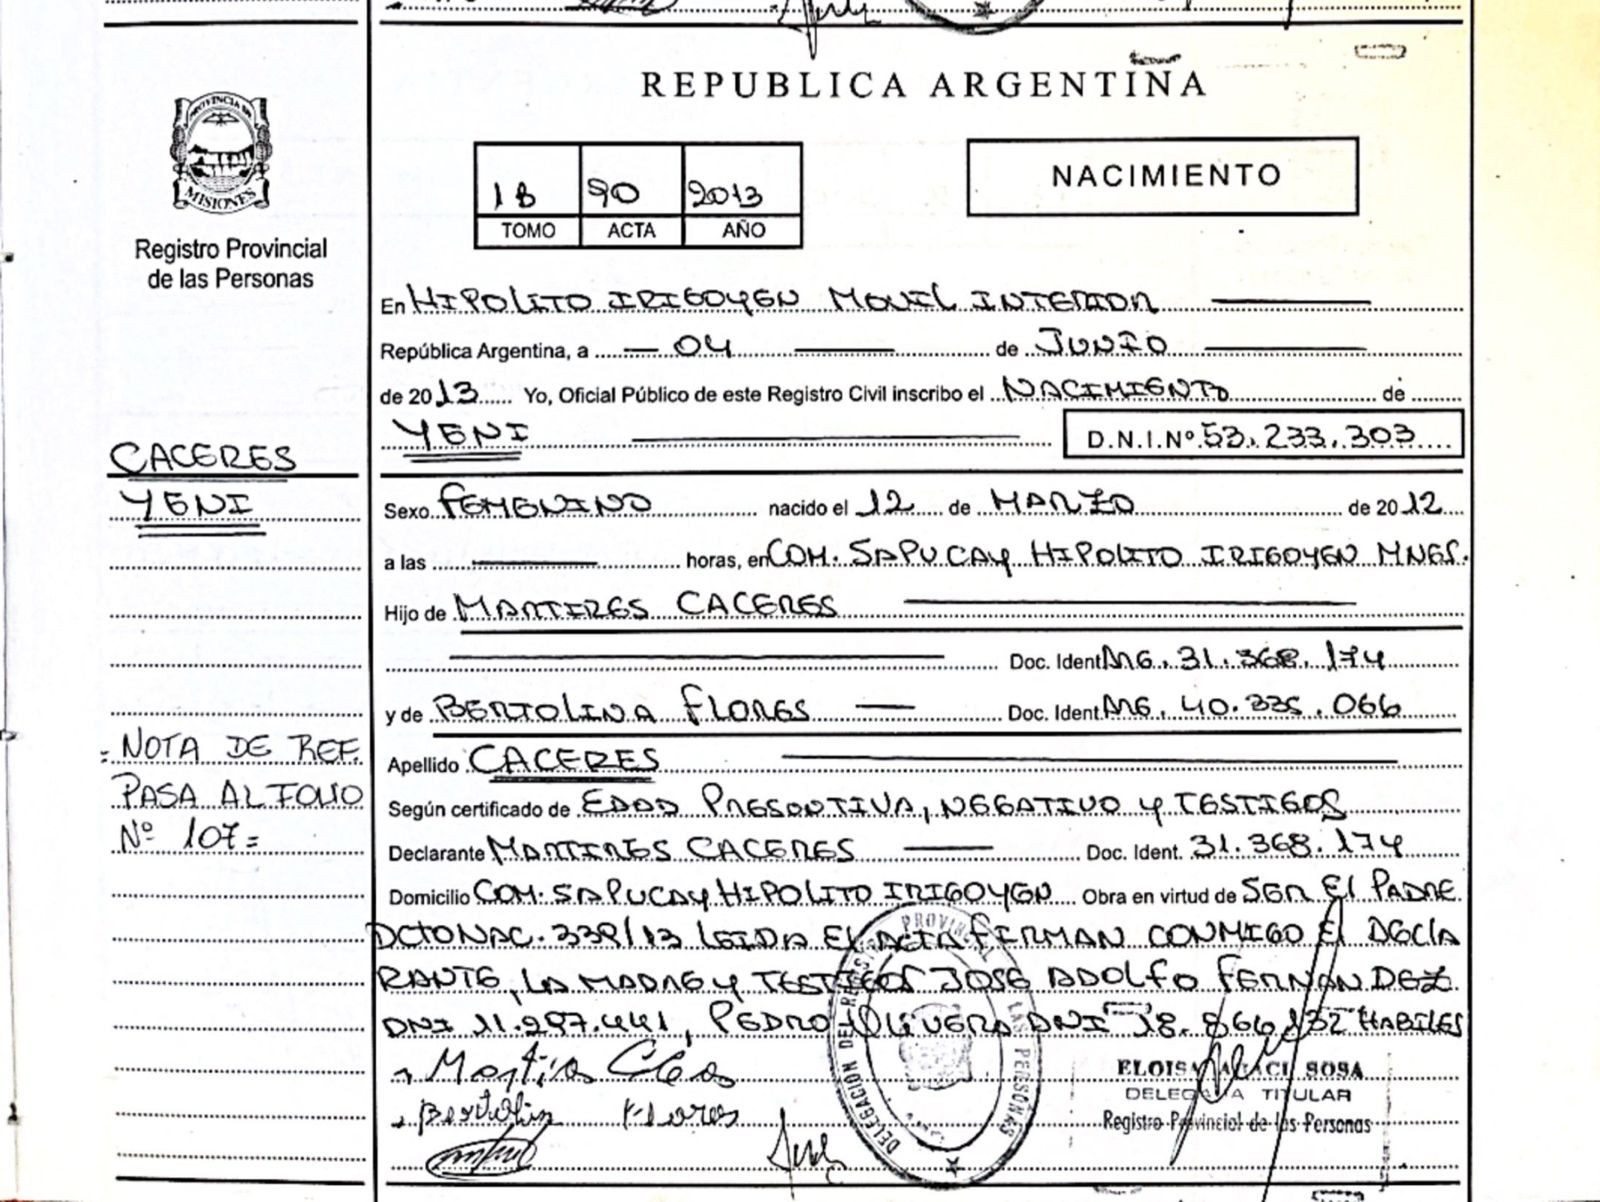 REPUBLICA ARGENTINA
PROVINCIA DE
MISIONES
Registro Provincial
de las Personas
1B 90 2013
TOMO ACTA AÑO
NACIMIENTO
En HIPOLITO IRIGOYEN MOVIL INTERIOR
República Argentina, a 04 de JUNIO
de 2013 Yo, Oficial Público de este Registro Civil inscribo el NACIMIENTO de
YENI D.N.I.Nº 53.233.303
CACERES
YENI
Sexo FEMENINO nacido el 12 de MARZO de 2012
a las horas, en COM. SAPUCAY HIPOLITO IRIGOYEN MNES.
Hijo de MARTIRES CACERES
Doc. Ident. ARG. 31.368.174
y de BERTOLINA FLORES Doc. Ident. ARG. 40.335.066
Apellido CACERES
=NOTA DE REF.
PASA AL FOLIO
Nº 107=
Según certificado de EDAD PRESONTIVA, NEGATIVO Y TESTIGOS
Declarante MARTIRES CACERES Doc. Ident. 31.368.174
Domicilio COM. SAPUCAY HIPOLITO IRIGOYEN Obra en virtud de SER EL PADRE
DCTO NAC. 339/13 LEIDA EL ACTA FIRMAN CONMIGO EL DECLA
RANTE, LA MADRE Y TESTIGOS JOSE ADOLFO FERNANDEZ
DNI 11.297.441, PEDRO OLIVERA DNI 18.866.132 HABILES
Bertolin Flores
DELEGACION DEL REGISTRO PROVINCIAL DE LAS PERSONAS
ELOISA SOSA
DELEGADA TITULAR
Registro Provincial de las Personas